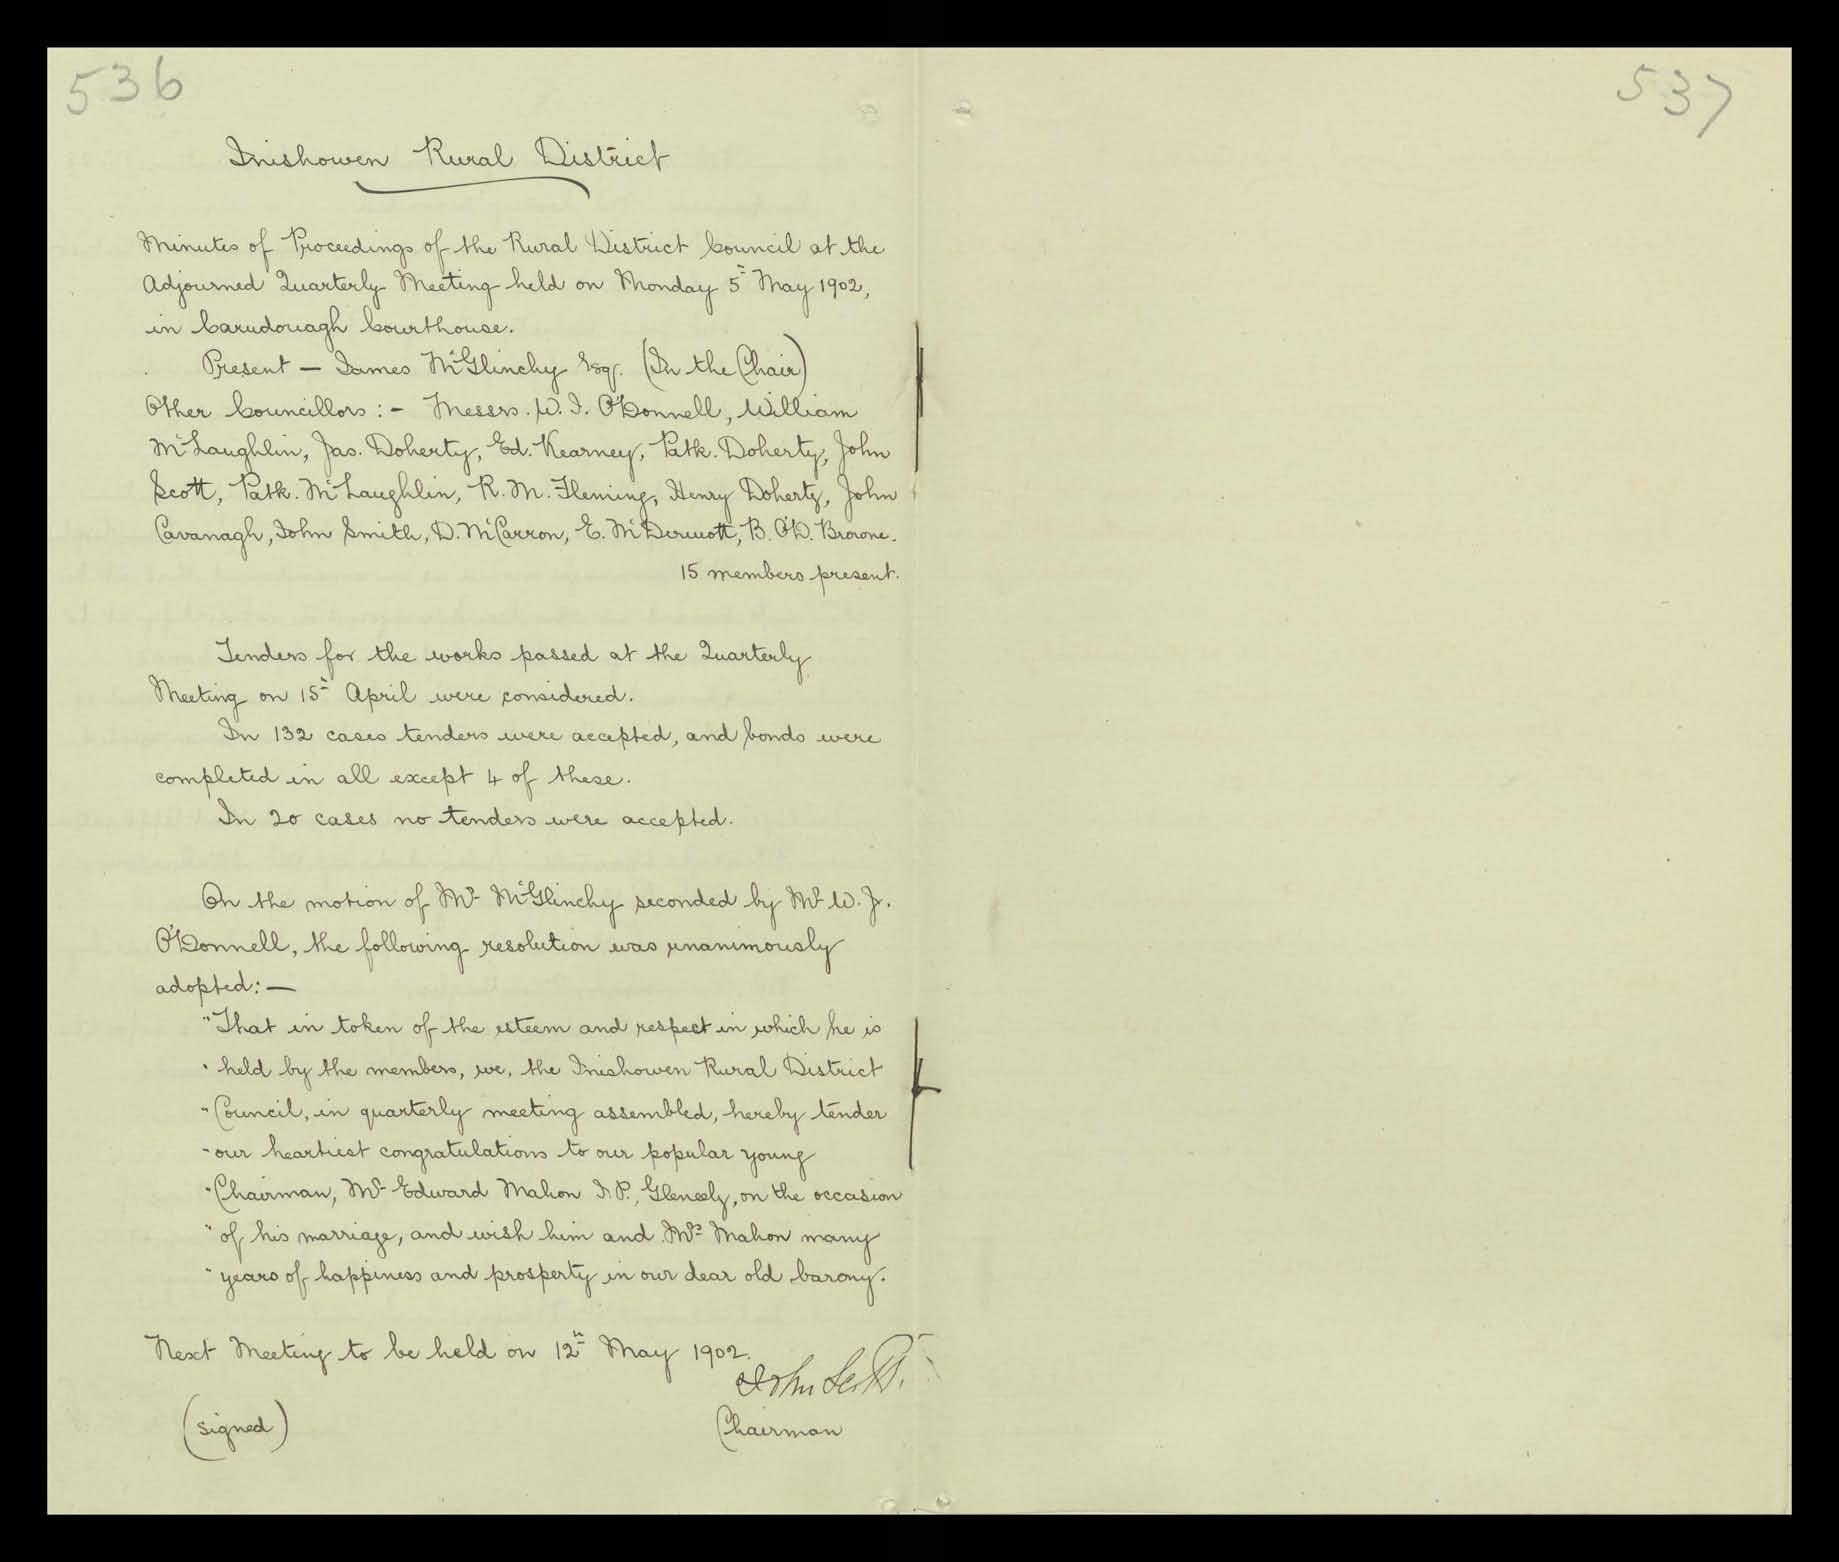 536
537
Inishowen Rural District
Minutes of Proceedings of the Rural District Council at the
Adjourned Quarterly Meeting held on Monday 5th May 1902,
in Carndonagh Courthouse.
Present — James McGlinchy Esq. (In the Chair)
Other Councillors :- Messrs. W. J. O'Donnell, William
McLaughlin, Jas. Doherty, Ed. Kearney, Patk. Doherty, John
Scott, Patk. McLaughlin, R. M. Fleming, Henry Doherty, John
Cavanagh, John Smith, D. McCarron, E. McDermott, B. O'D. Browne.
15 members present.
Tenders for the works passed at the Quarterly
Meeting on 15th April were considered.
In 132 cases tenders were accepted, and bonds were
completed in all except 4 of these.
In 20 cases no tenders were accepted.
On the motion of Mr McGlinchy seconded by Mr W. J.
O'Donnell, the following resolution was unanimously
adopted:—
"That in token of the esteem and respect in which he is
" held by the members, we, the Inishowen Rural District
" Council, in quarterly meeting assembled, hereby tender
" our heartiest congratulations to our popular young
" Chairman, Mr Edward Mahon J.P., Gleneely, on the occasion
" of his marriage, and wish him and Mrs Mahon many
" years of happiness and prosperity in our dear old barony.
Next Meeting to be held on 12th May 1902.
John Scott.
(signed) Chairman